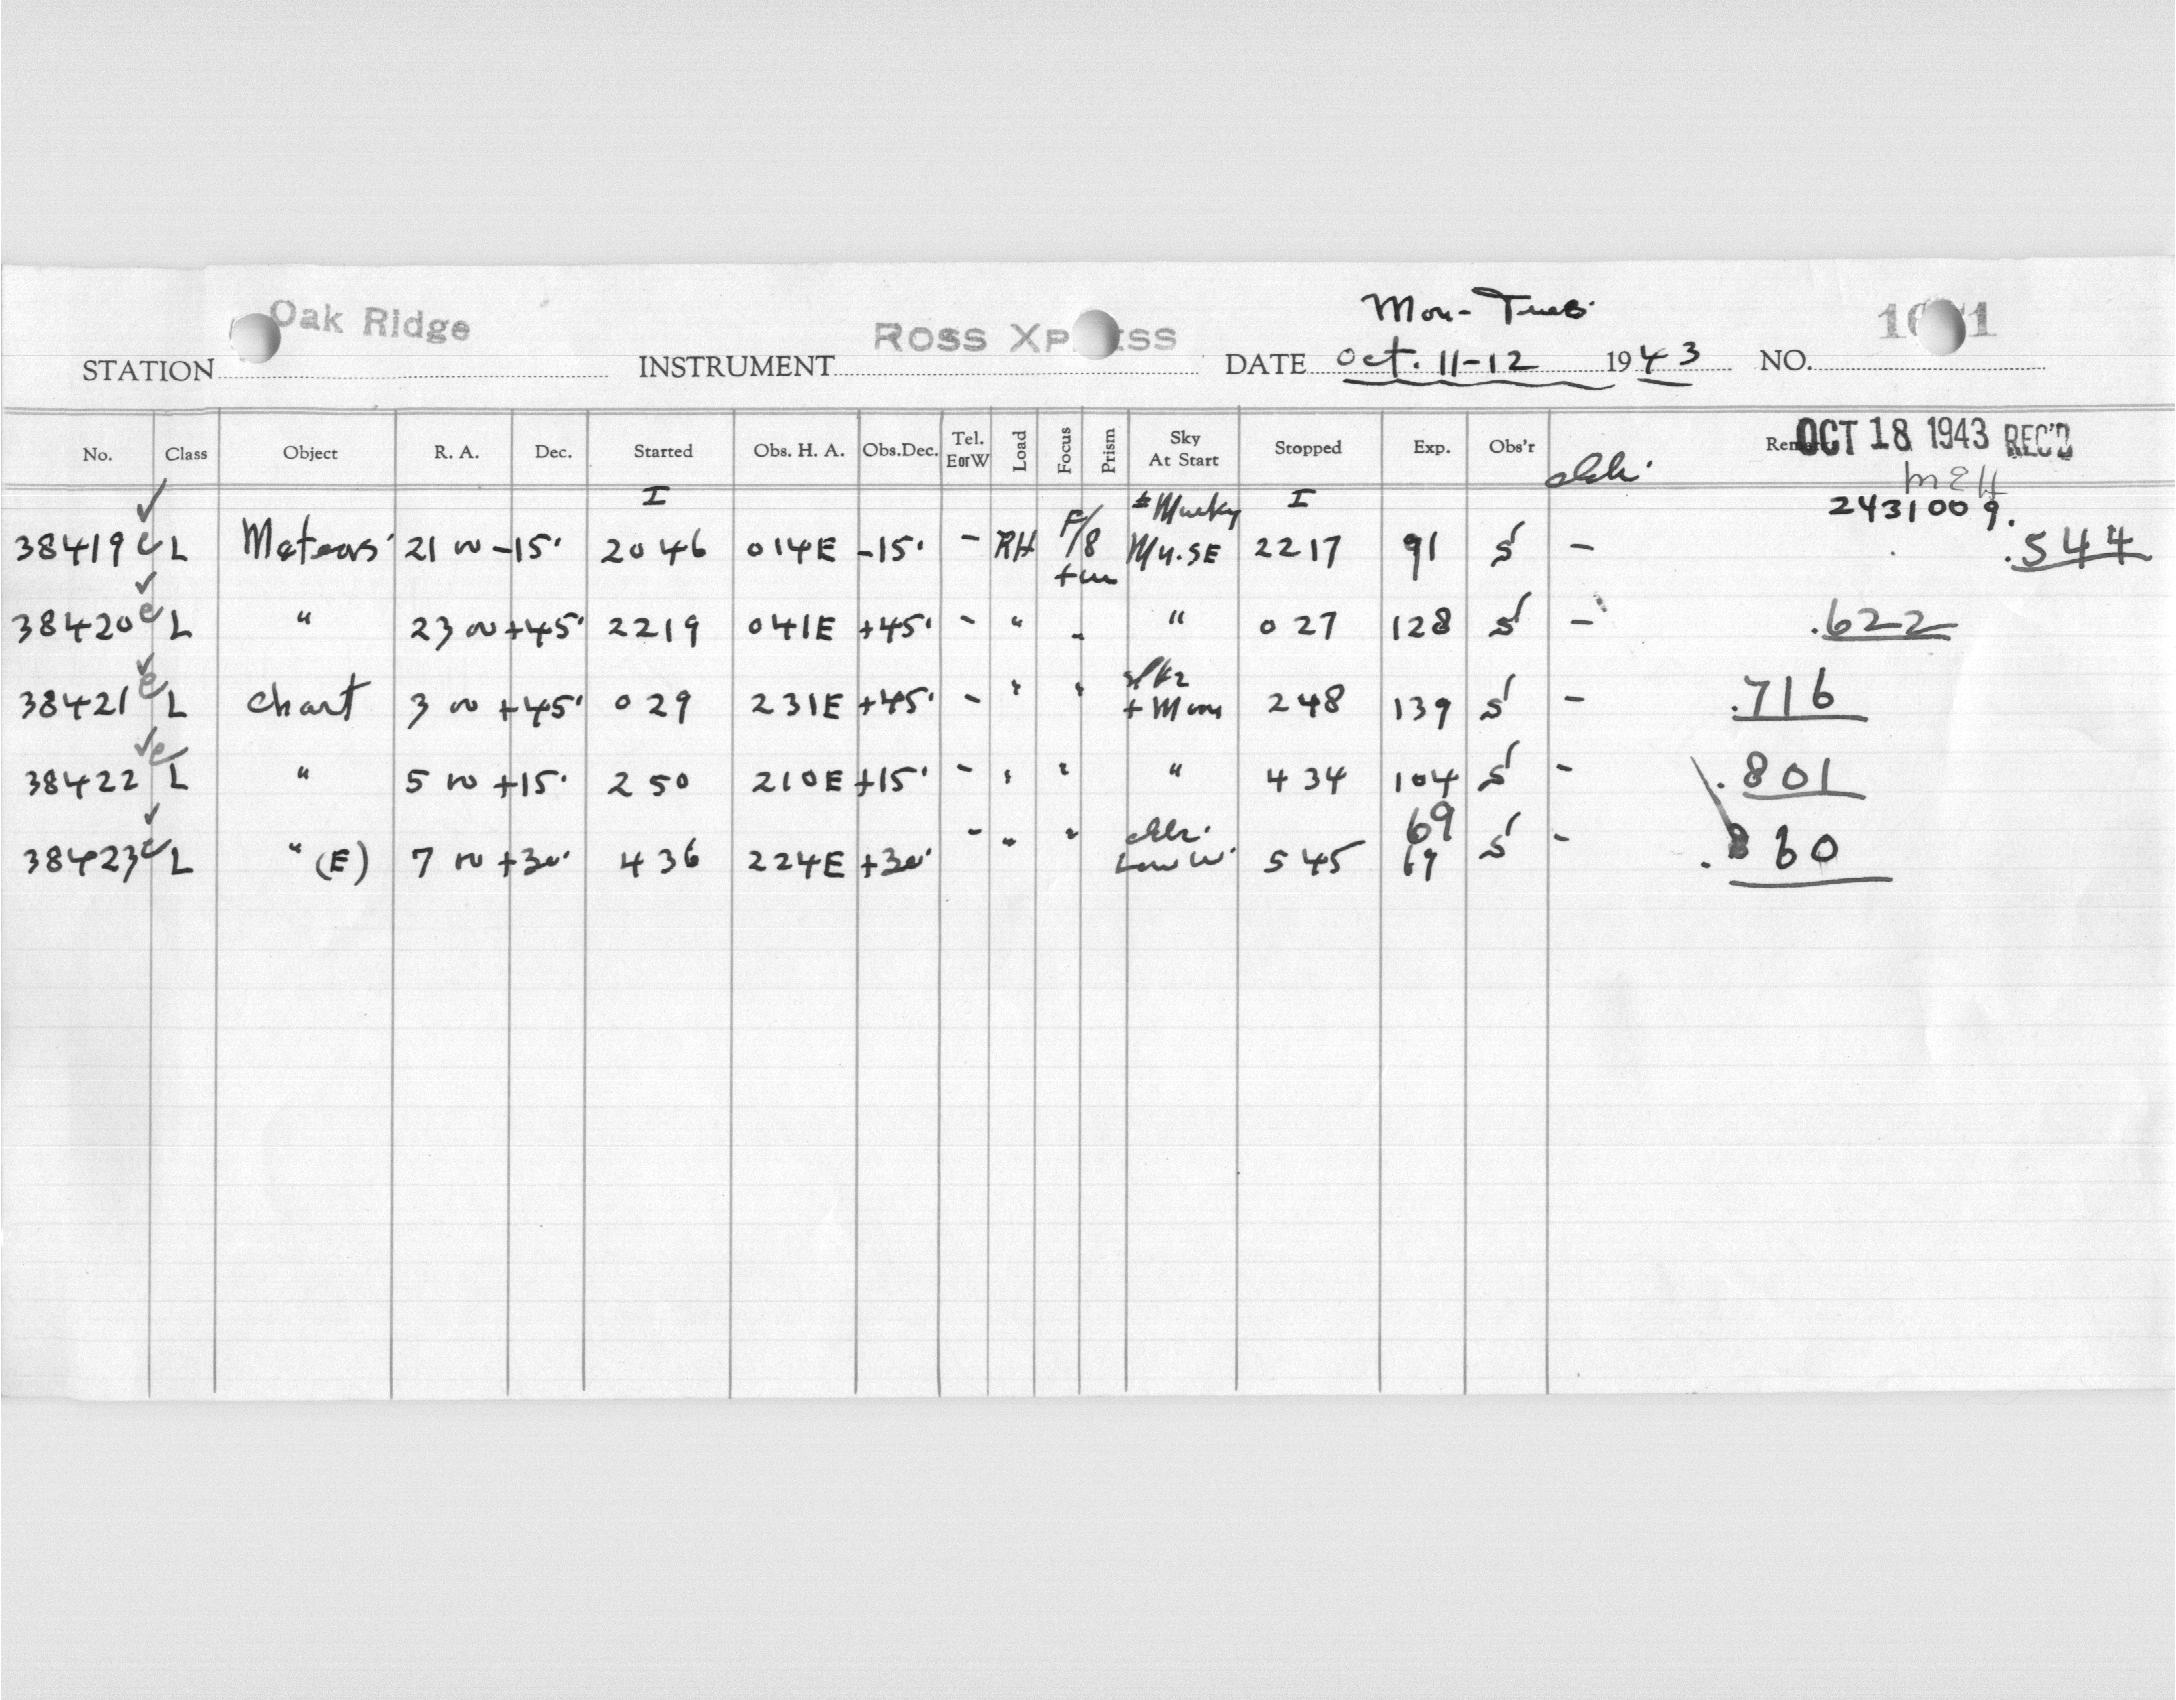 Mon-Tues.
Oak Ridge Ross
STATION INSTRUMENT DATE Oct. 11-12 1943 NO.
No. Class Object R. A. Dec. Started Obs. H. A. Obs.Dec. Tel. EorW Load Focus Prism Sky At Start Stopped Exp. Obs'r OCT 18 1943 REC'D
I I
2431009.
38419 L Meteors 21 00 -15° 2046 014E -15° - RH F/8 Murky SE 2217 91 S - .544
38420 e L " 23 00 +45° 2219 041E +45° - " " 027 128 S - .622
38421 e L Chart 3 00 +45° 029 231E +45° - " " + Moon 248 139 S - .716
38422 e L " 5 00 +15° 250 210E +15° - " " " 434 104 S - .801
38423 L " (E) 7 00 +30° 436 224E +30° - " " Low W. 545 69 69 S - .860